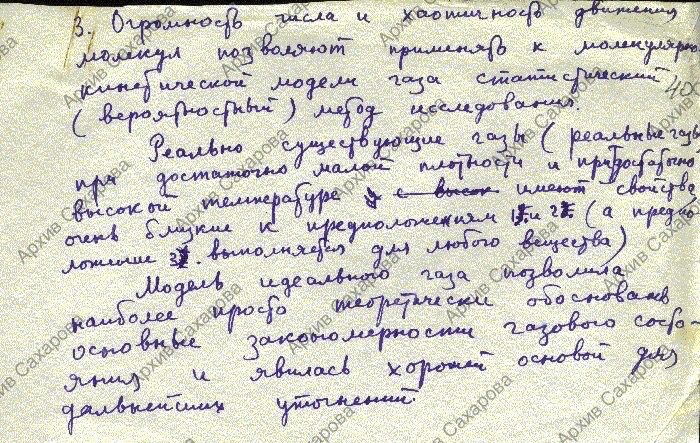 3. Огромность числа и хаотичность движения
молекул позволяют применять к молекулярно
кинетической модели газа статистический
(вероятностный) метод исследования.
Реально существующие газы (реальные газы)
при достаточно малой плотности и при достаточно
высокой температуре с высок имеют свойства
очень близкие к предположениям 1 и 2 (а предпо-
ложение 3. выполняется для любого вещества)
Модель идеального газа позволила
наиболее просто теоретически обосновать
основные закономерности газового состо-
яния и явилась хорошей основой для
дальнейших уточнений.
Архив Сахарова